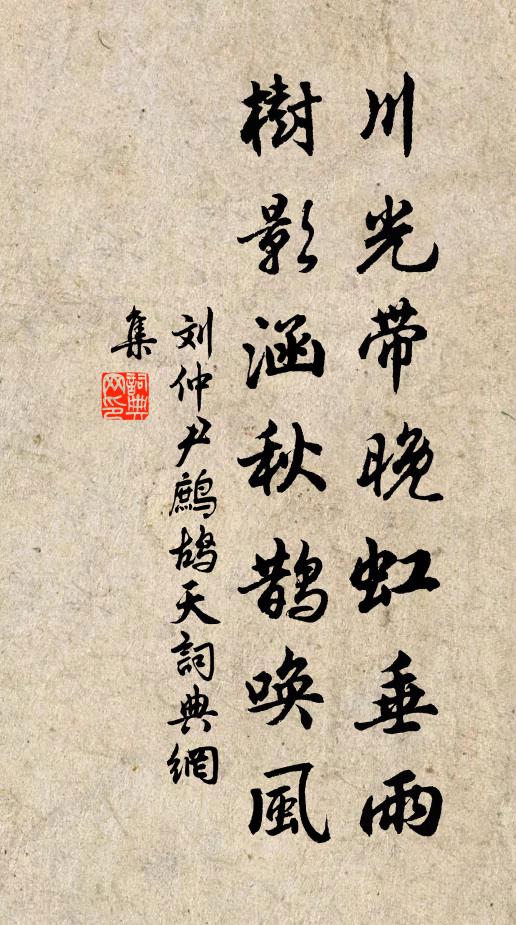 川光帶晚虹垂雨
樹影涵秋鵲喚風
刘仲尹鷓鴣天詞典網
集
詞典
网印